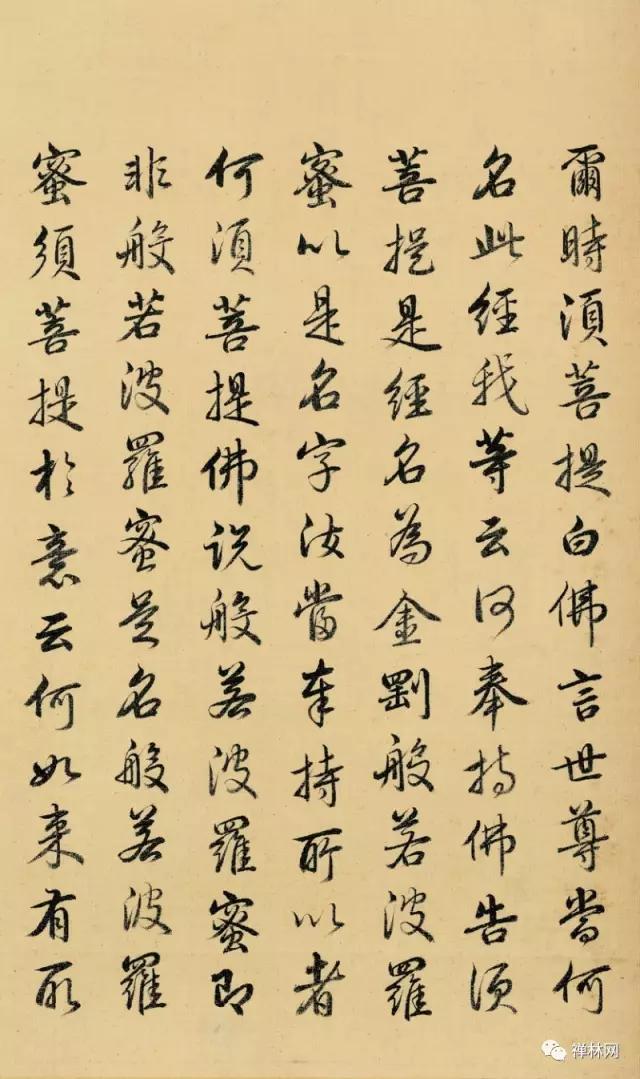 爾時須菩提白佛言世尊當何
名此經我等云何奉持佛告須
菩提是經名為金剛般若波羅
蜜以是名字汝當奉持所以者
何須菩提佛說般若波羅蜜即
非般若波羅蜜是名般若波羅
蜜須菩提於意云何如來有所
禅林网